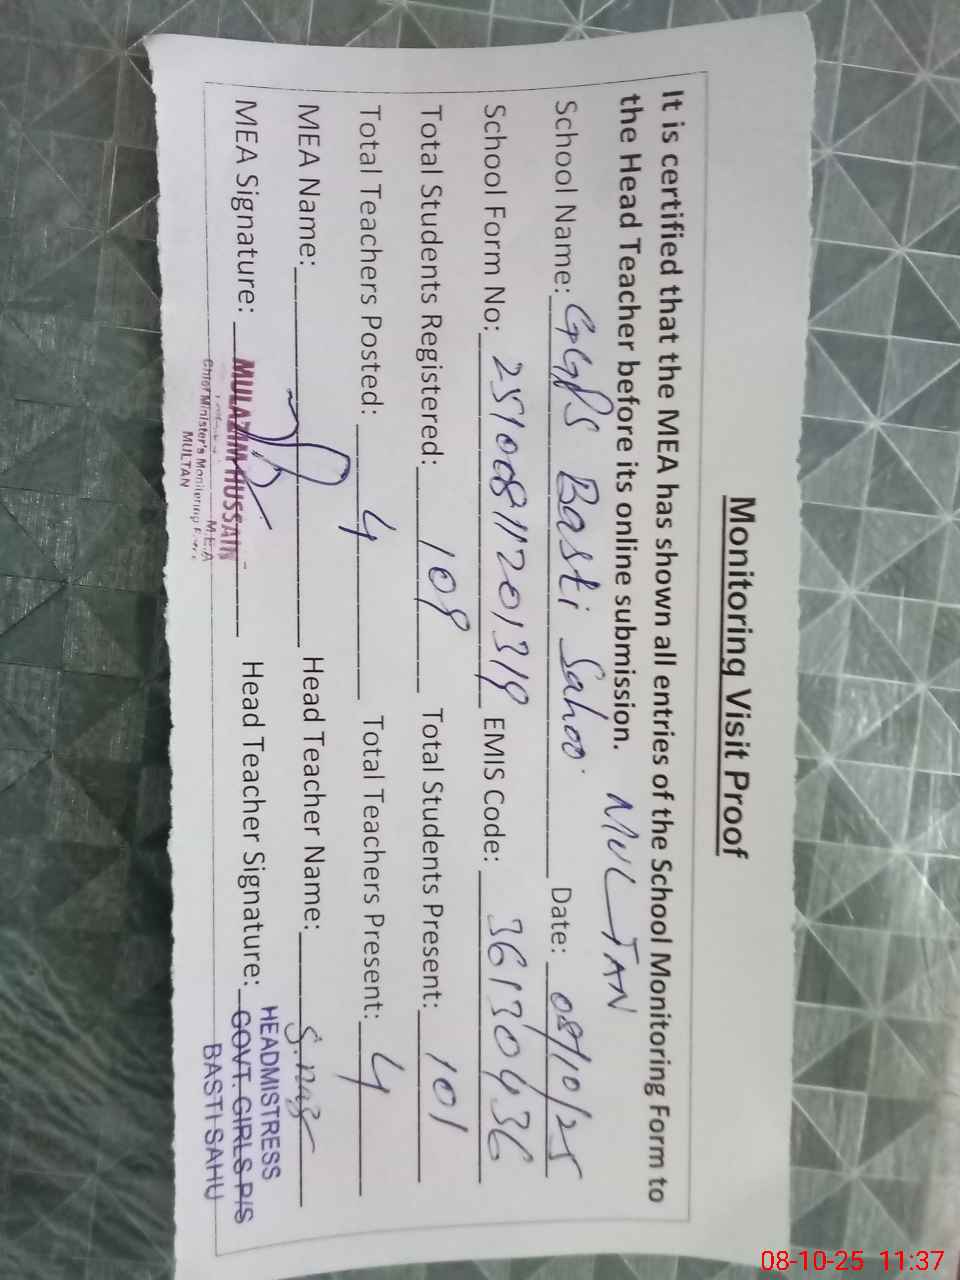 Monitoring Visit Proof
It is certified that the MEA has shown all entries of the School Monitoring Form to
the Head Teacher before its online submission. MULTAN
School Name: GGPS Basti Sahoo Date: 08/10/25
School Form No: 25100811201319 EMIS Code: 36130436
Total Students Registered: 109 Total Students Present: 101
Total Teachers Posted: 4 Total Teachers Present: 4
MEA Name: Head Teacher Name: S. naz
MEA Signature: Head Teacher Signature:
MULAZIM HUSSAIN
M.E.A
Chief Minister's Monitoring Force
MULTAN
HEADMISTRESS
GOVT. GIRLS P/S
BASTI SAHU
08-10-25 11:37